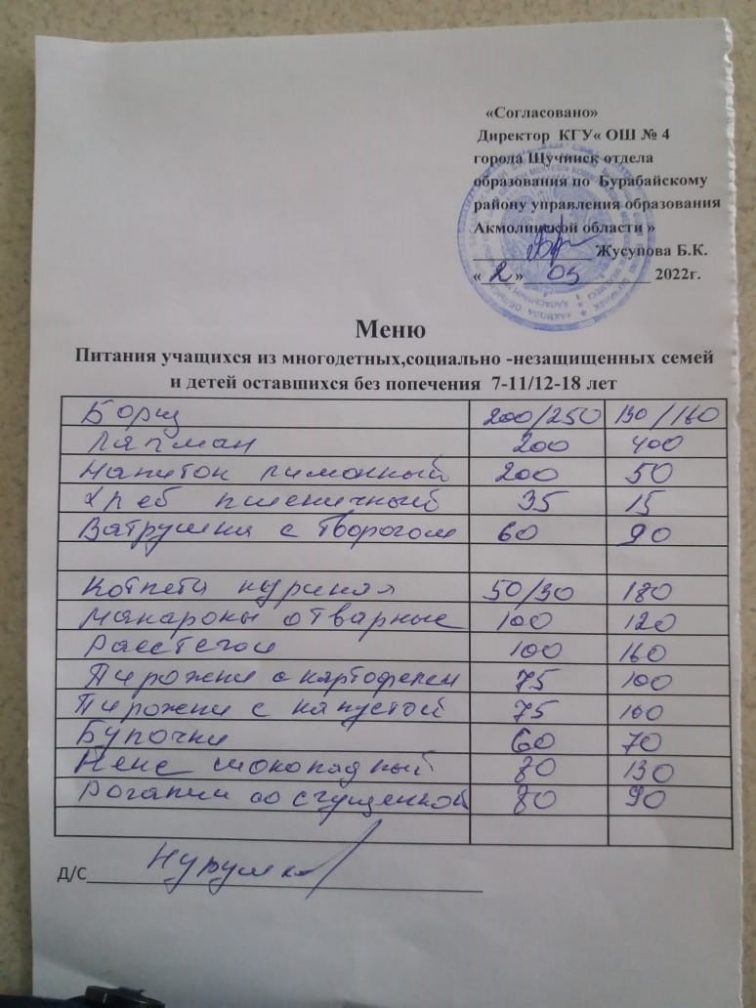 «Согласовано»
Директор КГУ« ОШ № 4
города Щучинск отдела
образования по Бурабайскому
району управления образования
Акмолинской области »
Жусупова Б.К.
« 2 » 05 2022г.
Меню
Питания учащихся из многодетных,социально -незащищенных семей
и детей оставшихся без попечения 7-11/12-18 лет
Борщ 200/250 130/160
Лагман 200 400
Напиток лимонный 200 50
Хлеб пшеничный 35 15
Ватрушки с творогом 60 90
Котлета куриная 50/30 180
Макароны отварные 100 120
Расстегаи 100 160
Пирожки с картофелем 75 100
Пирожки с капустой 75 100
Булочки 60 70
Кекс шоколадный 80 130
Рогалики со сгущенкой 80 90
Д/С